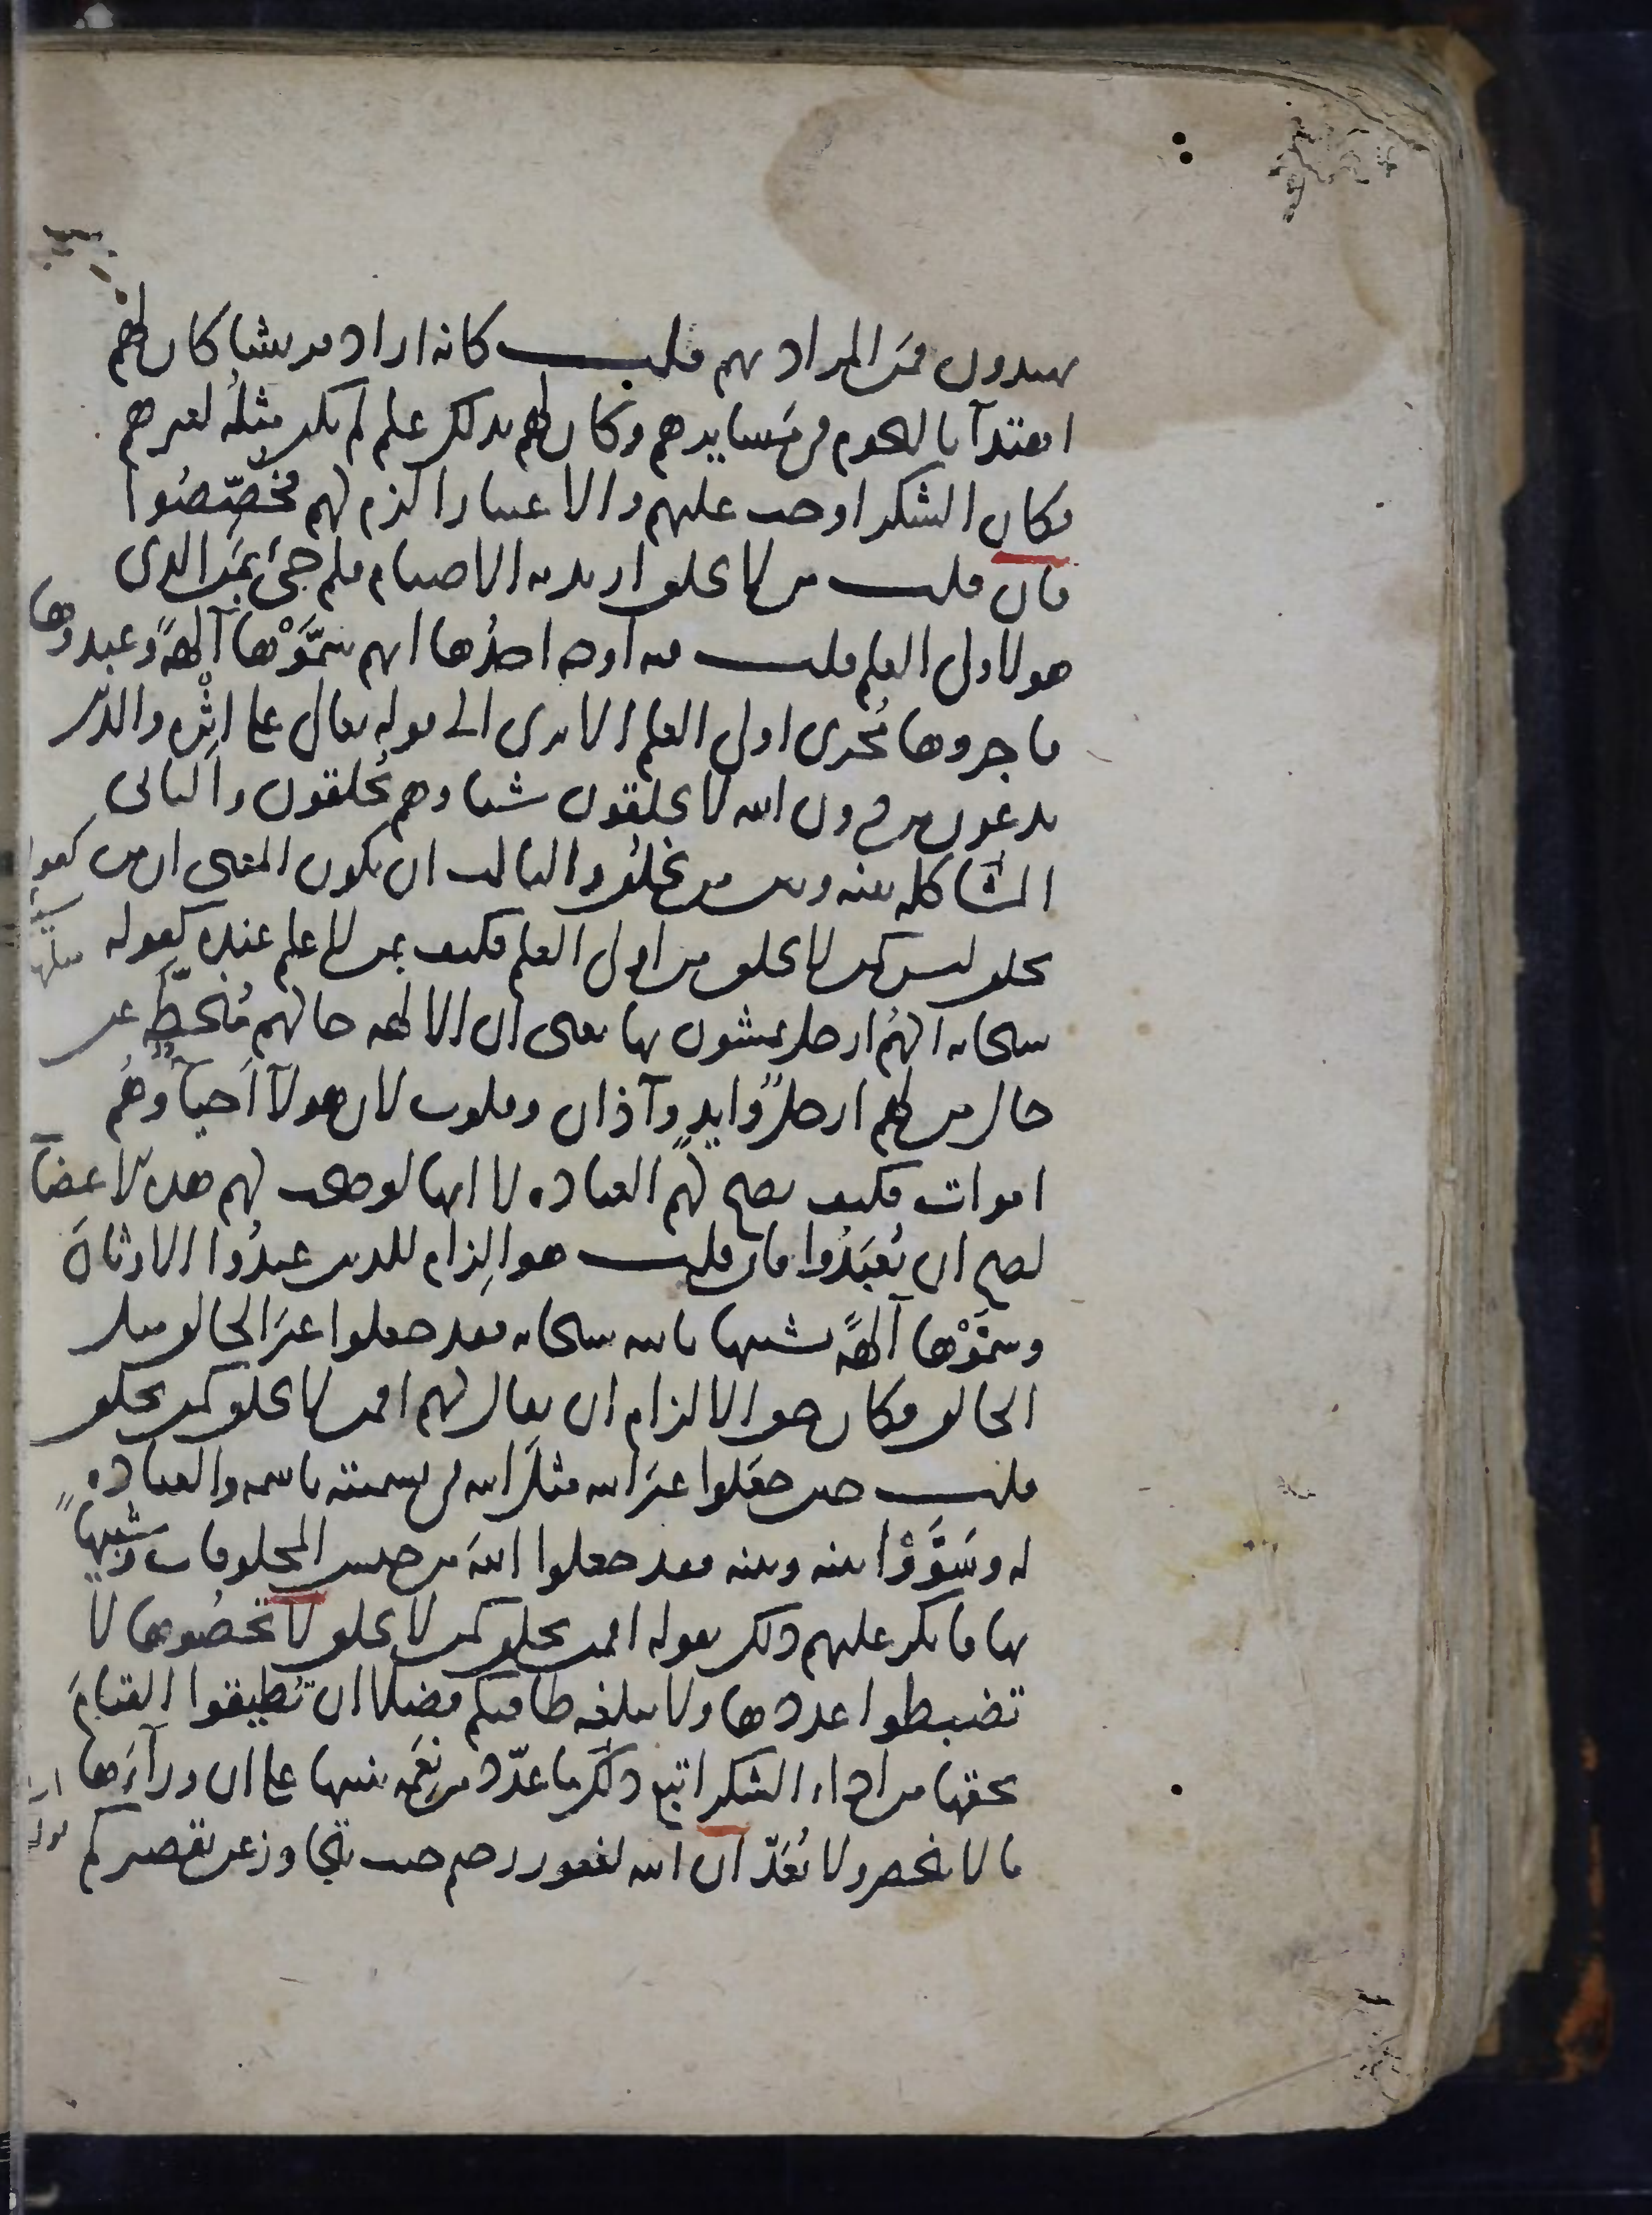 يهتدون فمَن المراد بهم قلت كانه اراد قريشا كان لهم
اهتدآ بالنجوم في مَسايرهم وكان لهم بذلك علم لم يكن مثلُه لغيرهم
فكان الشكر اوجب عليهم والاعتبار الزم لهم فخُصِّصُوا
فان قلت من لا يخلق اريد به الاصنام فلم جئ بمَن الذى
هو لاولى العلم قلت فيه اوجه احدُها انهم سَمَّوْها آلهةً وعبدوها
فاجروها مُجرى اولى العلم الا ترى الى قوله تعالى على اثْره والذين
يدعون من دون الله لا يخلقون شيئا وهم يُخلقون والثانى
المشاكله بينه وبين من يخلق والثالث ان يكون المعنى ان من
يخلق ليس كمن لا يخلق من اولى العلم فكيف بمن لا علم عنده كقوله
سبحانه الهُم ارجل يمشون بها يعنى ان الالهه حالهم مُنحطَّةٌ عن
حال من لهم ارجلٌ وايدٍ وآذان وقلوب لان هولآ احيآٌ وهُم
اموات فكيف يصح لهم العباده لا انها لو صحت لهم هذه الاعضآ
لصح ان يُعبَدُوا فان قلت هو الِزام للذين عبدُوا الاوثانَ
وسَمَّوْها آلهةً تشبيها بالله سبحانه فقد جعلوا غيَر الخالق مثل
الخالق فكان حق الالزام ان يقال لهم افمن لا يخلق كمن يخلق
قلت حين جعَلوا غيَر الله مثلَ الله فى تسميته باسمه والعباده
له وسَوَّوْا بينه وبينه فقد جعلوا اللهَ من جنس المخلوقات وشبيهًا
بها فانكر عليهم ذلك بقوله افمن يخلق كمن لا يخلق لا تُحصُوها لا
تضبطوا عددها ولا تبلغه طاقتكم فضلا ان تُطيقوا القيامَ
بحقها من اداء الشكر اتبع ذلك ما عدّد من نِعَمِه تنبيها على ان ورآءَها
ما لا ينحصر ولا يُعَدّ ان الله لغفور رحيم حيث يتجاوز عن تقصيركم